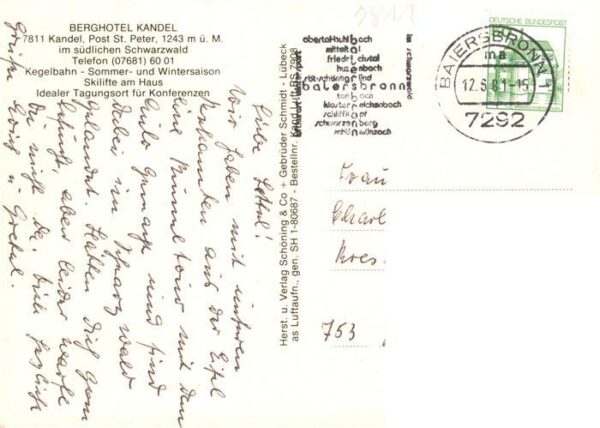 BERGHOTEL KANDEL
7811 Kandel, Post St. Peter, 1243 m ü. M.
im südlichen Schwarzwald
Telefon (07681) 60 01
Kegelbahn - Sommer- und Wintersaison
Skilifte am Haus
Idealer Tagungsort für Konferenzen
Wir haben mit unseren
Bekannten aus der Eifel
eine Bummeltour mit dem
Auto gemacht und sind
dabei im Schwarzwald
gelandet. Hätten Dich gern
aber leider warst
Du nicht da.
Grüße
Herst. u. Verlag Schöning & Co + Gebrüder Schmidt - Lübeck
as Luftaufn., gen. SH 1-80687 - Bestellnr. Kand
5811
obertal-buhlbach
mitteltal
friedrichstal
huzenbach
röt-schönegründ
baiersbronn
tonbach
klosterreichenbach
schliffkopf
schwarzenberg
schönmünzach
im schwarzwald
BAIERSBRONN 1
ma
12.6.81-15
7292
DEUTSCHE BUNDESPOST
Frau
753